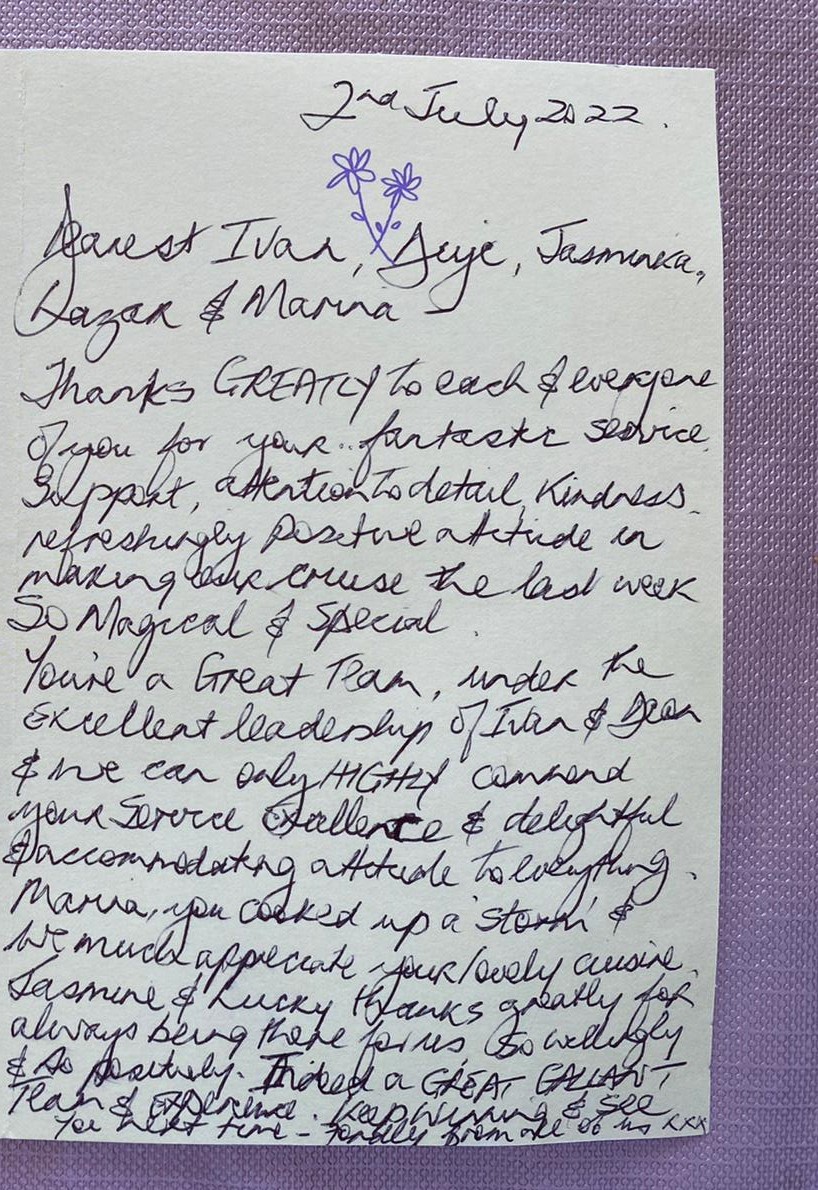 2nd July 2022.
Dearest Ivan, Duje, Jasminka,
Lazar & Marina
Thanks GREATLY to each & everyone
of you for your fantastic service,
Support, attention to detail, Kindness,
refreshingly positive attitude in
making our cruise the last week
So Magical & Special.
You're a Great Team, under the
excellent leadership of Ivan &
& we can only HIGHLY commend
your Service Excellence & delightful
& accommodating attitude to everything.
Marina, you cooked up a 'storm' &
we much appreciate your lovely cuisine.
Jasmine & Lucky thanks greatly for
always being there for us so willingly
& so positively. Indeed a GREAT GALLANT
Team & Experience. Keep winning & see
You next time - fondly from all of us xxx